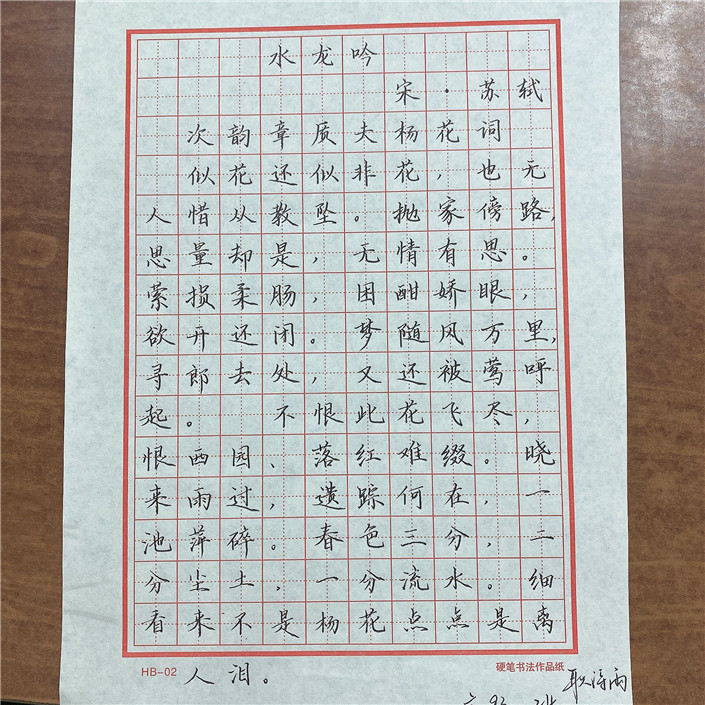 水龙吟
宋·苏轼
次韵章质夫杨花词
似花还似非花，也无
人惜从教坠。抛家傍路，
思量却是，无情有思。
萦损柔肠，困酣娇眼，
欲开还闭。梦随风万里，
寻郎去处，又还被莺呼
起。不恨此花飞尽，
恨西园、落红难缀。晓
来雨过，遗踪何在，一
池萍碎。春色三分，二
分尘土，一分流水。细
看来不是杨花点点是离
人泪。
HB-02
硬笔书法作品纸